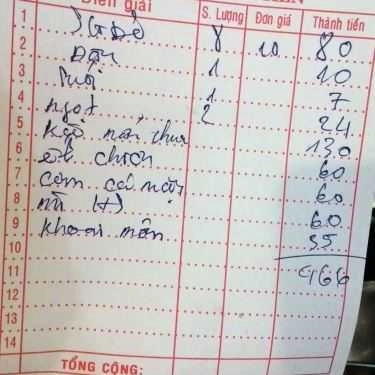 Diễn giải S. Lượng Đơn giá Thành tiền
1 8 10 80
2 Đậu 1 10
3 1 7
4 ngọt 2 24
5 chua 130
6 ếch chiên 60
7 cơm cá mặn 60
8 60
9 khoai môn 35
10
11 466
12
13
14
TỔNG CỘNG: